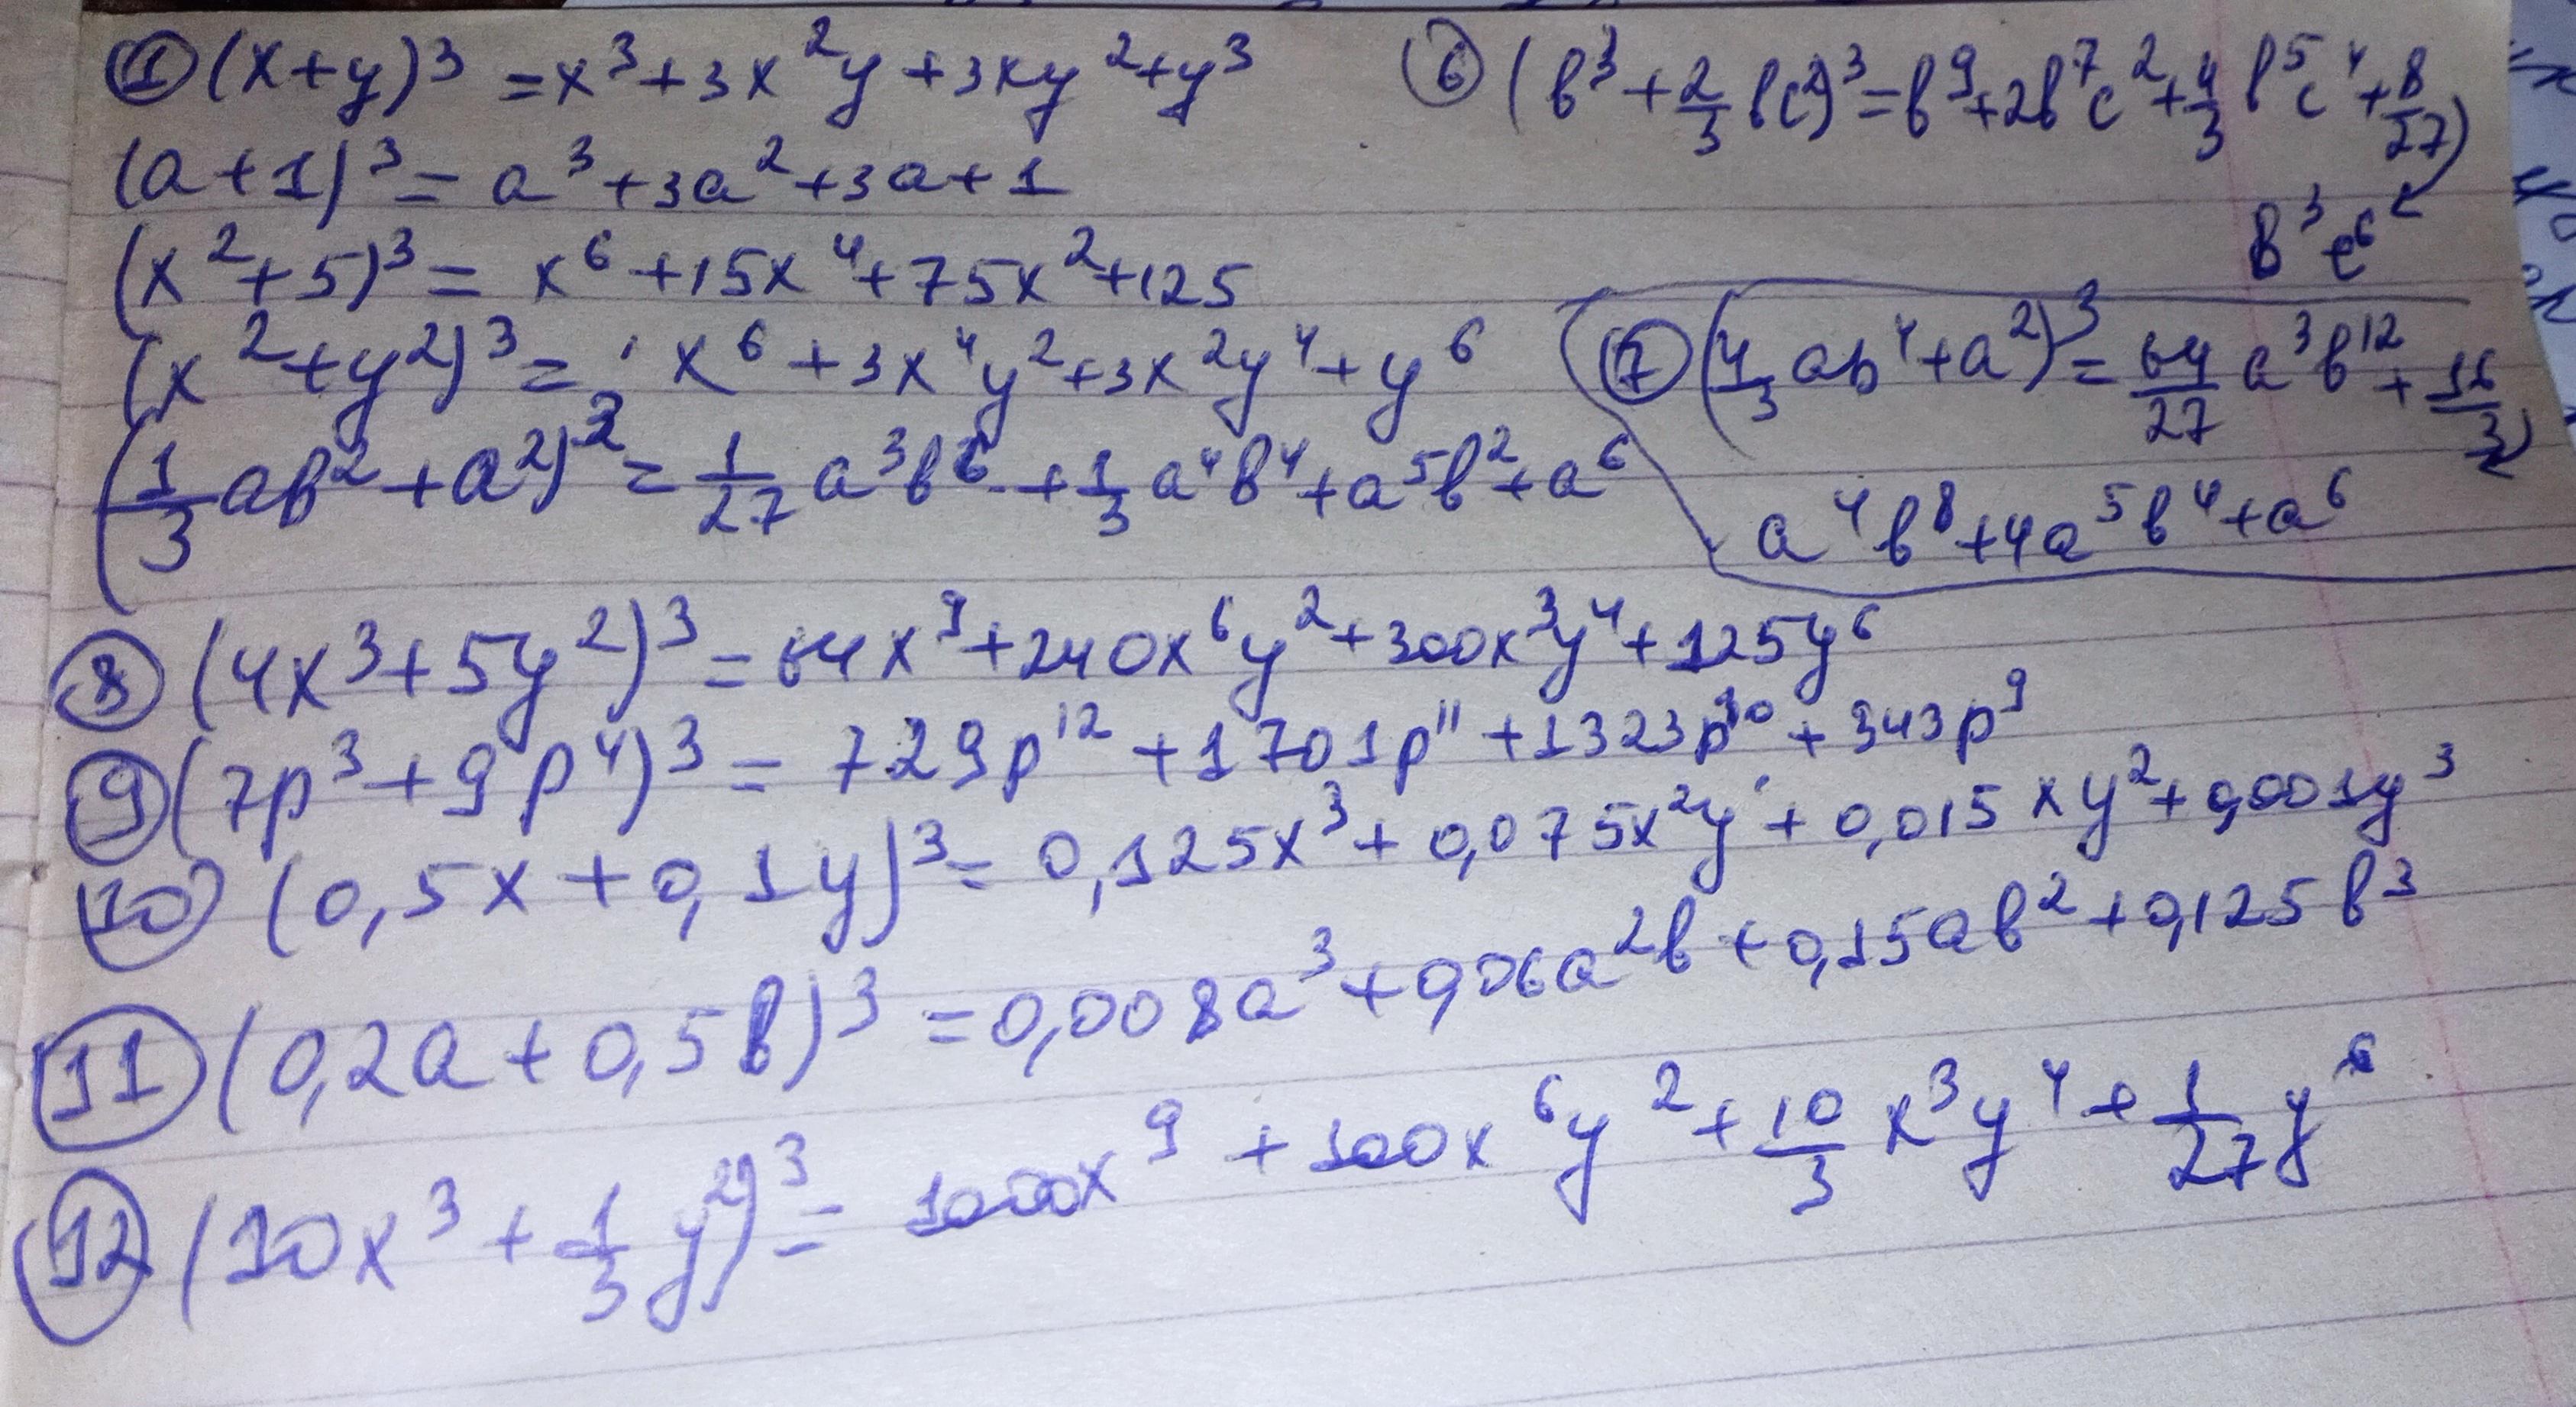 ① (x+y)³ = x³+3x²y+3xy²+y³
(a+1)³ = a³+3a²+3a+1
(x²+5)³ = x⁶+15x⁴+75x²+125
(x²+y²)³ = x⁶+3x⁴y²+3x²y⁴+y⁶
(1/3 ab²+a²)³ = 1/27 a³b⁶+1/3 a⁴b⁴+a⁵b²+a⁶
⑥ (b³+2/3 bc²)³=b⁹+2b⁷c²+4/3 b⁵c⁴+8/27
b³c⁶
⑦ (4/3 ab⁴+a²)³=64/27 a³b¹²+16/3
a⁴b⁸+4a⁵b⁴+a⁶
⑧ (4x³+5y²)³=64x⁹+240x⁶y²+300x³y⁴+125y⁶
⑨ (7p³+9p⁴)³ = 729p¹²+1701p¹¹+1323p¹⁰+343p⁹
⑩ (0,5x+0,1y)³= 0,125x³+0,075x²y+0,015xy²+0,001y³
⑪ (0,2a+0,5b)³=0,008a³+0,06a²b+0,15ab²+0,125b³
⑫ (10x³+1/3 y²)³= 1000x⁹+100x⁶y²+10/3 x³y⁴+1/27 y⁶